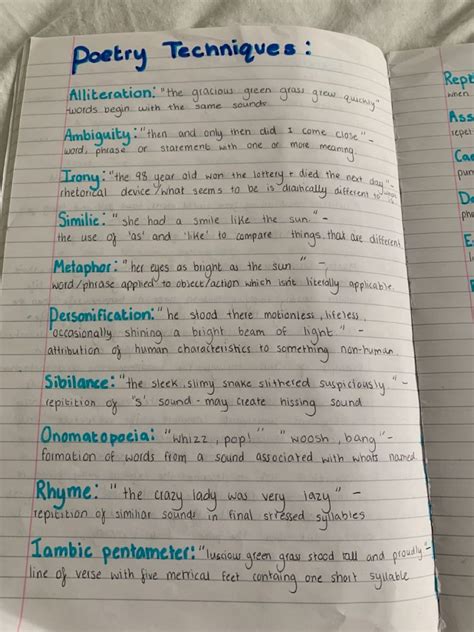 Poetry Techniques:
Alliteration: "the gracious green grass grew quickly"
words begin with the same sounds
Ambiguity: "then and only then did I come close" -
word, phrase or statement with one or more meaning.
Irony: "the 98 year old won the lottery + died the next day" -
rhetorical device/what seems to be is drastically different to
Similie: "she had a smile like the sun." -
the use of 'as' and 'like' to compare things that are different
Metaphor: "her eyes as bright as the sun." -
word/phrase applied to object/action which isnt literally applicable.
Personification: "he stood there motionless, lifeless,
occasionally shining a bright beam of light." -
attribution of human characteristics to something non-human.
Sibilance: "the sleek, slimy snake slithered suspiciously" -
repitition of 's' sound - may create hissing sound
Onomatopoeia: "whizz, pop!" "woosh, bang" -
formation of words from a sound associated with whats named
Rhyme: "the crazy lady was very lazy" -
repitition of similar sounds in final stressed syllables
Iambic pentameter: "luscious green grass stood tall and proudly" -
line of verse with five metrical feet containg one short syllable
Rept
when
Ass
repit
Ca
pun
De
ph
E